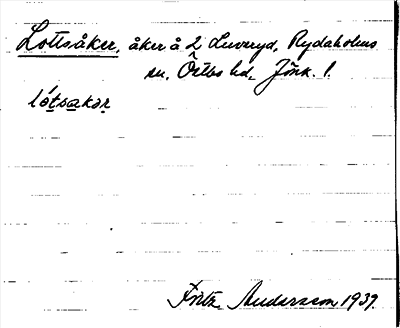 Lottsåker, åker å 2 Luveryd, Rydaholms
sn, Östbo hd, Jönk. l.
lo̍tsakər
Fritz Andersson 1937.